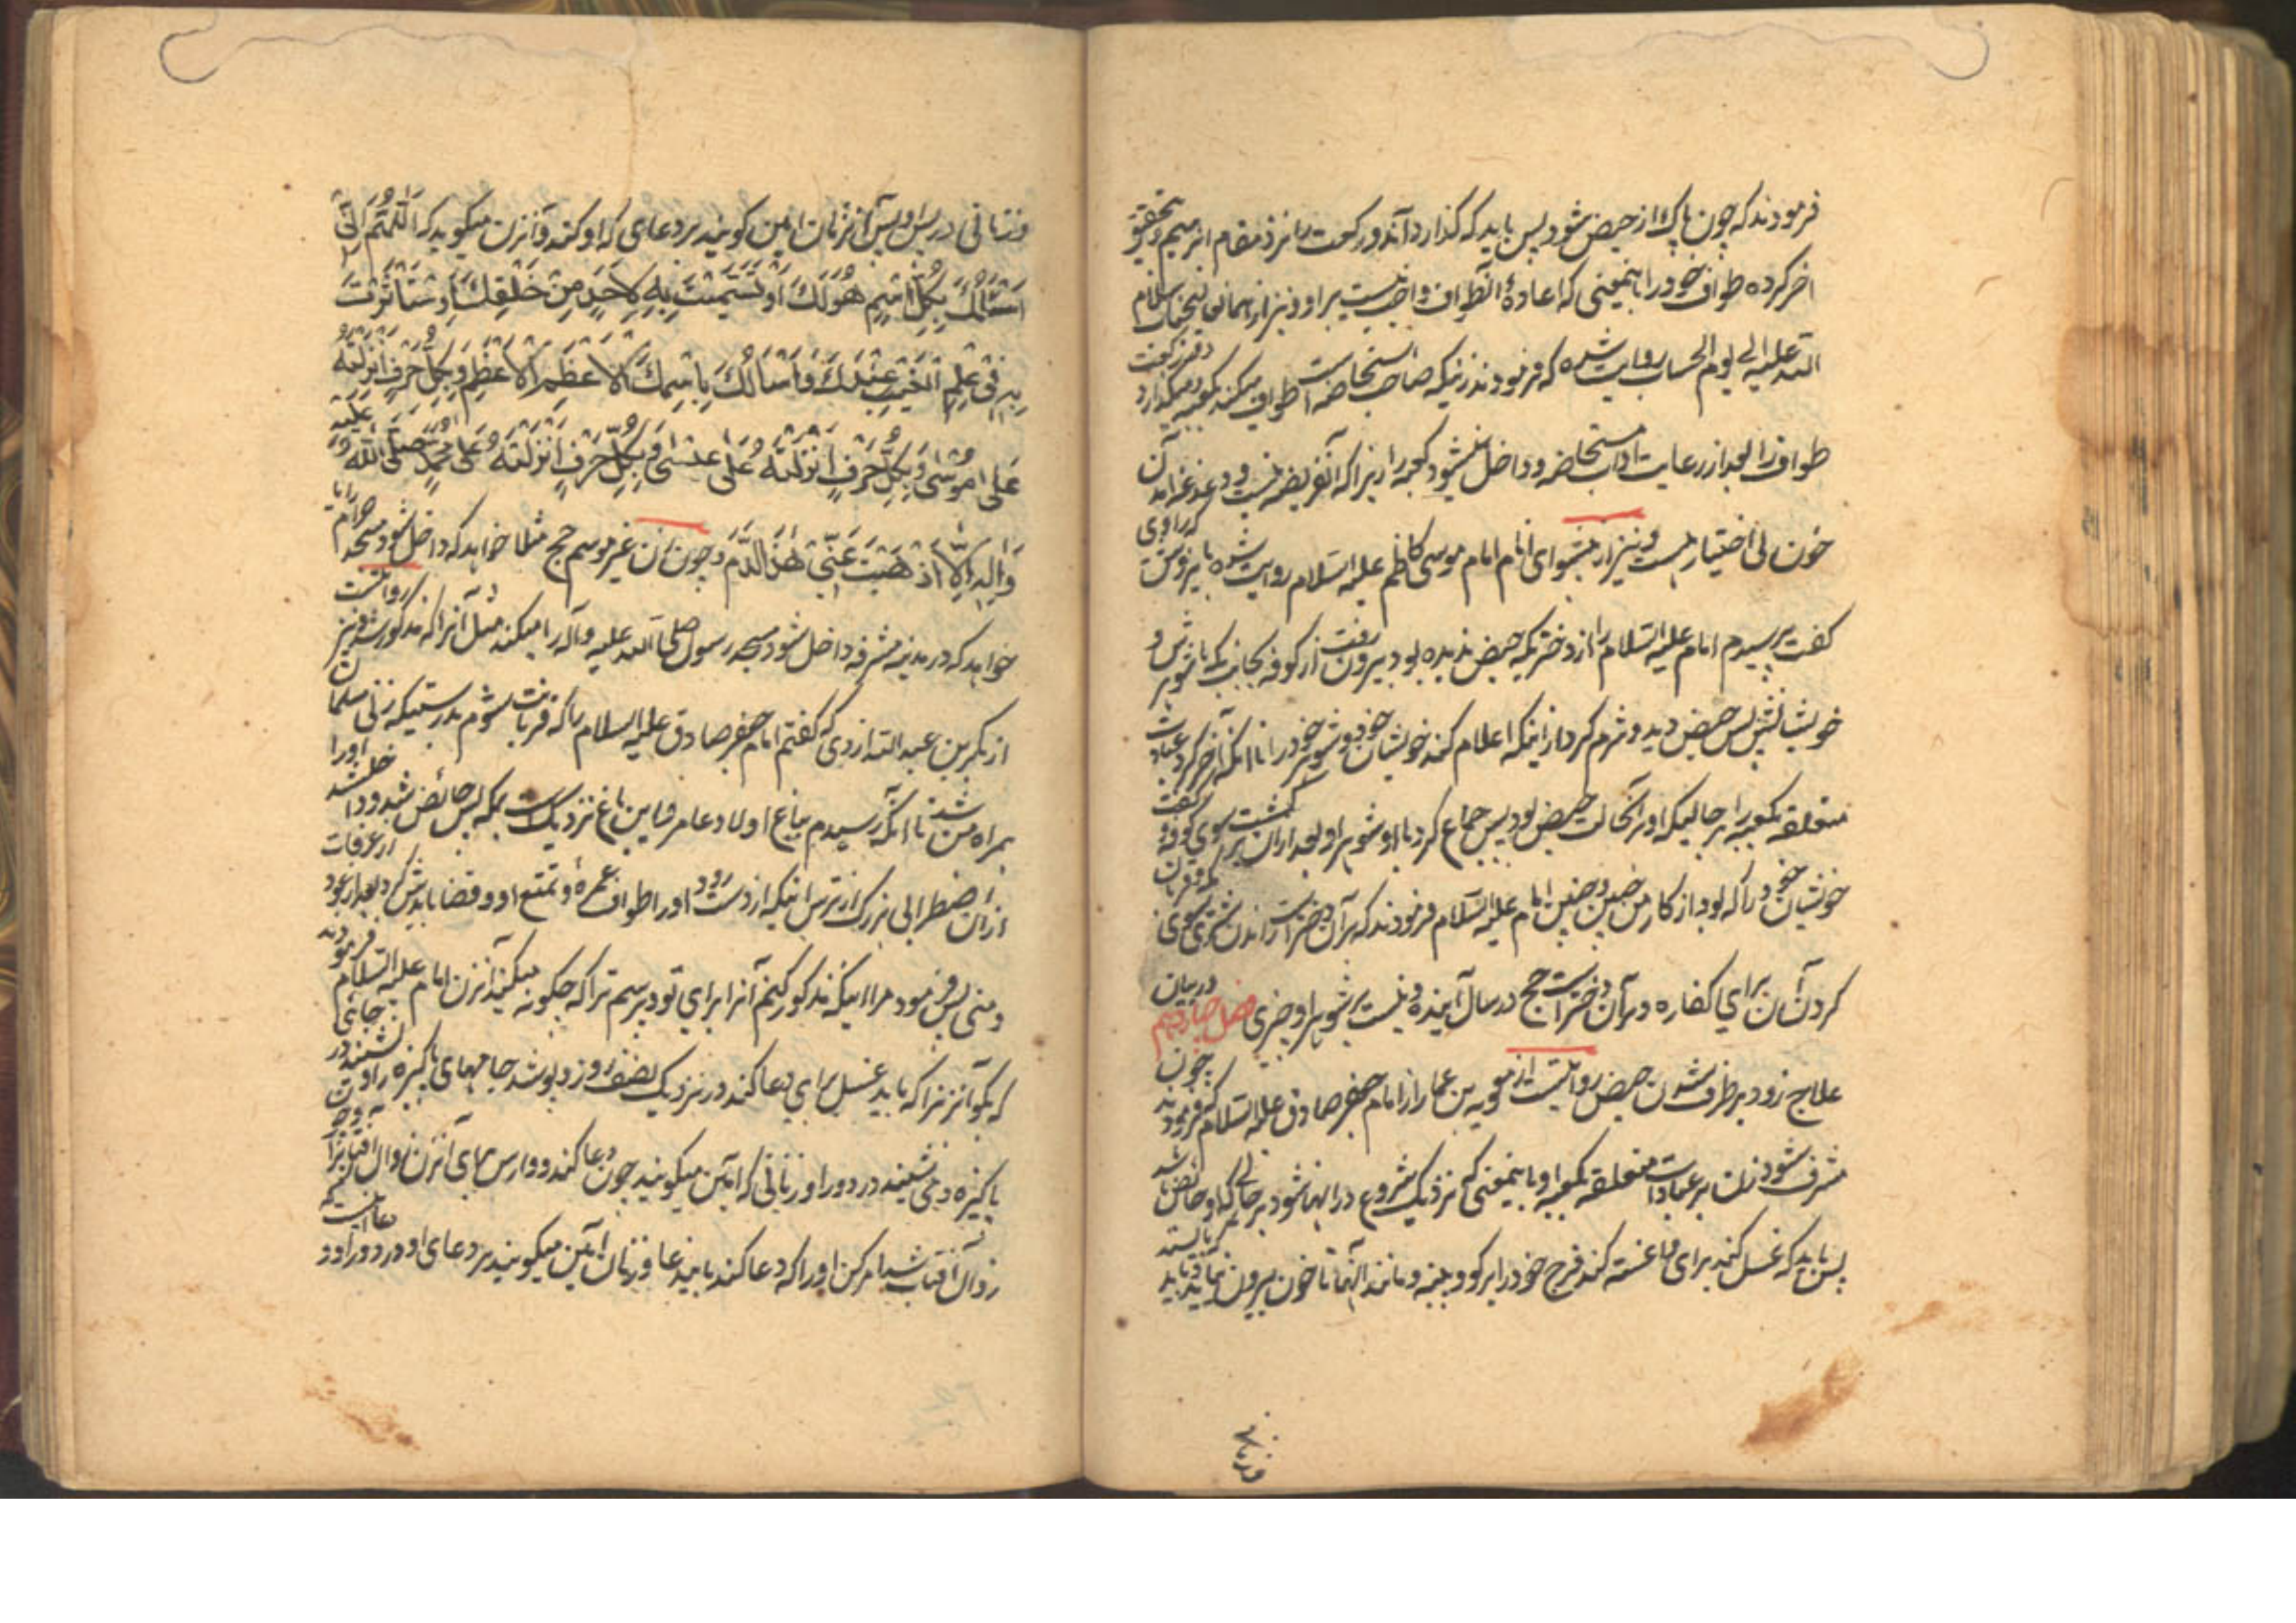 فرمودند که چون پاک از حیض شود پس باید که گذارد آندو رکعت را نزد مقام ابرهیم و بتحقیق
اخر کرده طواف خود را باینمعنی که اعادهٔ آنطواف واجب نیست بر او و نیز از همان
الله علیه الی یوم الحساب روایت شده که فرمودند زنیکه صاحب استحاضه است طواف میکند بکعبه و میگذارد دو رکعت
طواف را بعد از رعایت اداب مستحاضه و داخل نمیشود کعبه را زیرا که آنفریضه نیست و در آمدن
خون بی اختیار هست و نیز از پیشوای انام امام موسی کاظم علیه السلام روایت شده که راوی
گفت پرسیدم امام علیه السلام را از دختریکه حیض ندیده بود بیرون رفت از کوفه بجانب مکه با شوهرش و
خویشانش پس حیض دید و شرم کرد از اینکه اعلام کند خویشان خود و شوهر خود را تا آنکه آخر کرد عبادات
متعلقه بکعبه را بر حالیکه او را آنحالت حیض بود پس جماع کرد با او شوهر او و بعد از ان برگشت سوی کوفه و گفت
خویشان خود را که بود از کار من چنین و چنین امام علیه السلام فرمودند که بر آن دختر است راندن شتری سوی مکه و قربان
کردن آن برای کفاره و بر آن دختر است حج در سال آینده و نیست بر شوهر او چیزی فصل چهاردهم در بیان
علاج زود برطرف شدن حیض روایتست از معویه بن عمار از امام جعفر صادق علیه السلام که فرمودند چون
مشرف شود زن بر عبادات متعلقه بکعبه او باینمعنی که نزدیک شروع در انها شود بر حالی که او حائض باشد
پس باید که غسل کند برای و غسته کند فرج خود را بکرو و پنبه و مانند آنها تا خون بیرون نیاید و باید
و زنانی در پس او پس آنزنان امین گویند بر دعای که او کند و آنزن میگوید که اَللّٰهُمَّ اِنّی
اَسْئَلُكَ بِكُلِّ اسْمٍ هُوَ لَكَ اَوْ تَسَمَّيْتَ بِهِ لِاَحَدٍ مِنْ خَلْقِكَ اَوِ اسْتَأْثَرْتَ
بِهِ فِى عِلْمِ الْغَيْبِ عِنْدَكَ وَاَسْأَلُكَ بِاسْمِكَ الْاَعْظَمِ الْاَعْظَمِ وَبِكُلِّ حَرْفٍ اَنْزَلْتَهُ
عَلٰى مُوْسٰى وَبِكُلِّ حَرْفٍ اَنْزَلْتَهُ عَلٰى عِيْسٰى وَبِكُلِّ حَرْفٍ اَنْزَلْتَهُ عَلٰى مُحَمَّدٍ صَلَّى اللّٰهُ عَلَيْهِ
وَاٰلِهِ اِلَّا اَذْهَبْتَ عَنّى هٰذَا الدَّمَ و چون زن غیر موسم حج مثلا خواهد که داخل شود مسجد حرام را یا
خواهد که در مدینه مشرفه داخل شود مسجد رسول صلی الله علیه وآله را میکند مثل آنرا که مذکور شد و نیز روایتست
از بکر بن عبد الله ازدی که گفتم امام جعفر صادق علیه السلام را که قربانت شوم بدرستیکه زنی مسلمان
همراه من شد تا آنکه رسیدم بباغ اولاد عامر و این باغ نزدیک است بمکه پس حائض شد و داخل شد او را
ازان اضطرابی بزرگ از ترس اینکه از دست رود او را طواف عمره و تمتع او و قضا بایدش کرد بعد از عود از عرفات
و منی پس فرمود مرا اینکه مذکور کنم آنرا برای تو و پرسم ترا که چگونه میکند آنزن امام علیه السلام فرمودند
که بگو آنزن را که باید غسل برای دعا کند در نزدیک نصف روز و بپوشد جامهای پاکیزه را و نشیند در جائی
پاکیزه و می نشینند در دور او زنانی که امین میگویند چون دعا کند و وارس برای آنزن زوال افتاب را
زوال آفتاب شد امر کن او را که دعا کند باین دعا و زنان امین میگویند بر دعای او در دور او و